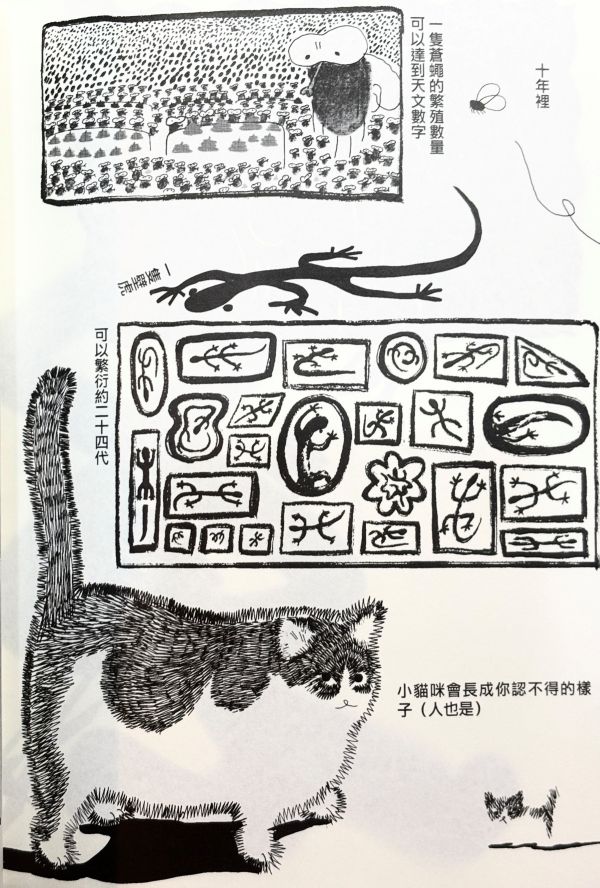 十年裡
一隻蒼蠅的繁殖數量
可以達到天文數字
一隻壁虎
可以繁衍約二十四代
小貓咪會長成你認不得的樣
子（人也是）